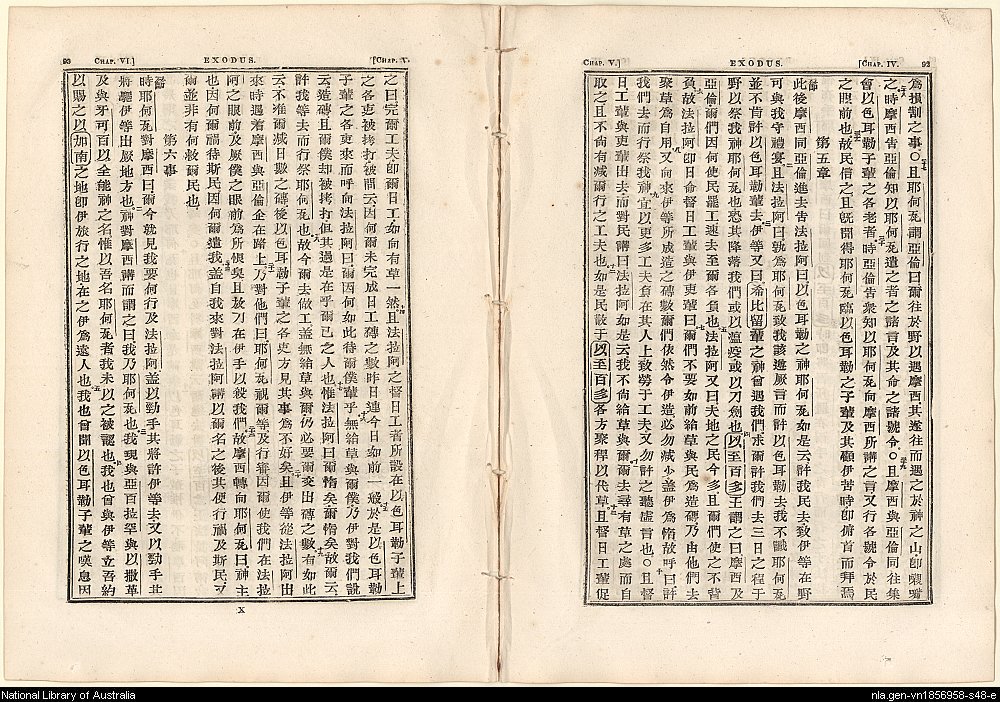 CHAP. V.]
EXODUS.
[CHAP. IV.
92
為損割之事〇且耶何瓦謂亞倫曰爾往於野以遇摩西其遂往而遇之於神之山即
之時摩西告亞倫知以耶何瓦遣之者之諸言及其命之諸號令〇且摩西與亞倫同往集
會以色耳勒子輩之各老者時亞倫告衆知以耶何瓦向摩西所講之言又行各號令於民
之眼前也故民信之且既聞得耶何瓦臨以色耳勒之子輩及其顧伊苦時即俯首而拜焉
第五章
此後摩西同亞倫進去告法拉阿曰以色耳勒之神耶何瓦如是云許我民去致伊等在野
可與我守禮宴且法拉阿曰孰為耶何瓦致我該遵厥言而許以色耳勒去我不識耶何瓦
並不肯許以色耳勒輩去伊等又曰希比留輩之神曾遇我們求爾許我們去三日之程于
野以祭我神耶何瓦也恐其降落我們或以瘟疫或以刀劍也以至百多王謂之曰摩西及
亞倫爾們因何使民罷工速去至爾各負也法拉阿又曰夫地之民今多且爾們使之不背
負故法拉阿即日命督日工輩與伊吏輩曰爾們不要如前給草與民為造磚乃由他們去
聚草為自用又向來伊等所成造之磚數爾們依然令伊造必勿減少蓋伊為惰故呼曰許
我們去而行祭我神宜以更多工夫負在其人上致勞于工夫又勿許之聽虛言也〇且督
日工輩與吏輩出去而對民講曰法拉阿如是云我不尚給草與爾爾去尋有草之處而自
取之且不尚有減爾行之工夫也如是民散于以至百多各方聚稈以代草且督日工輩促
93
CHAP. VI.]
EXODUS.
[CHAP. V.
之曰完爾工夫即爾日工如向有草一然且法拉阿之督日工者所設在以色耳勒子輩上
之各吏被拷打被問云因何爾未完成日工磚之數昨日連今日如前一般於是以色耳勒
子輩之各吏來而呼向法拉阿曰爾因何如此待爾僕輩乎無給草與爾僕乃伊對我們說
云造磚且爾僕卻被拷打但其過是在乎爾己之人也惟法拉阿曰爾惰矣爾惰矣故爾云
許我等去而行祭耶何瓦也故今爾去做工蓋無給草與爾仍必要爾交出磚之數有如此
云不准爾減日數之磚後以色耳勒子輩之各吏方見其事為不好矣且伊等從法拉阿出
來時遇着摩西與亞倫企在路上乃對他們曰耶何瓦視爾等及行審因爾使我們在法拉
阿之眼前及厥僕之眼前為所恨臭且放刀在伊手以殺我們故摩西轉向耶何瓦曰神主
也因何爾禍待斯民因何爾遣我蓋自我來對法拉阿講以爾名之後其便行禍及斯民
爾並非有何救爾民也
第六章
時耶何瓦對摩西曰爾今就見我要何行及法拉阿蓋以勁手其將許伊等去又以勁手
將驅伊等出厥地方也神對摩西講而謂之曰我乃耶何瓦也我現與亞百拉罕與以撒革
及與牙可百以全能神之名惟以吾名耶何瓦者我未以之被認也我也曾與伊等立吾約
以賜之以加南之地即伊旅行之地在之伊為遠人也我也曾聞以色耳勒子輩之嘆息因
X
National Library of Australia
nla.gen-vn1856958-s48-e